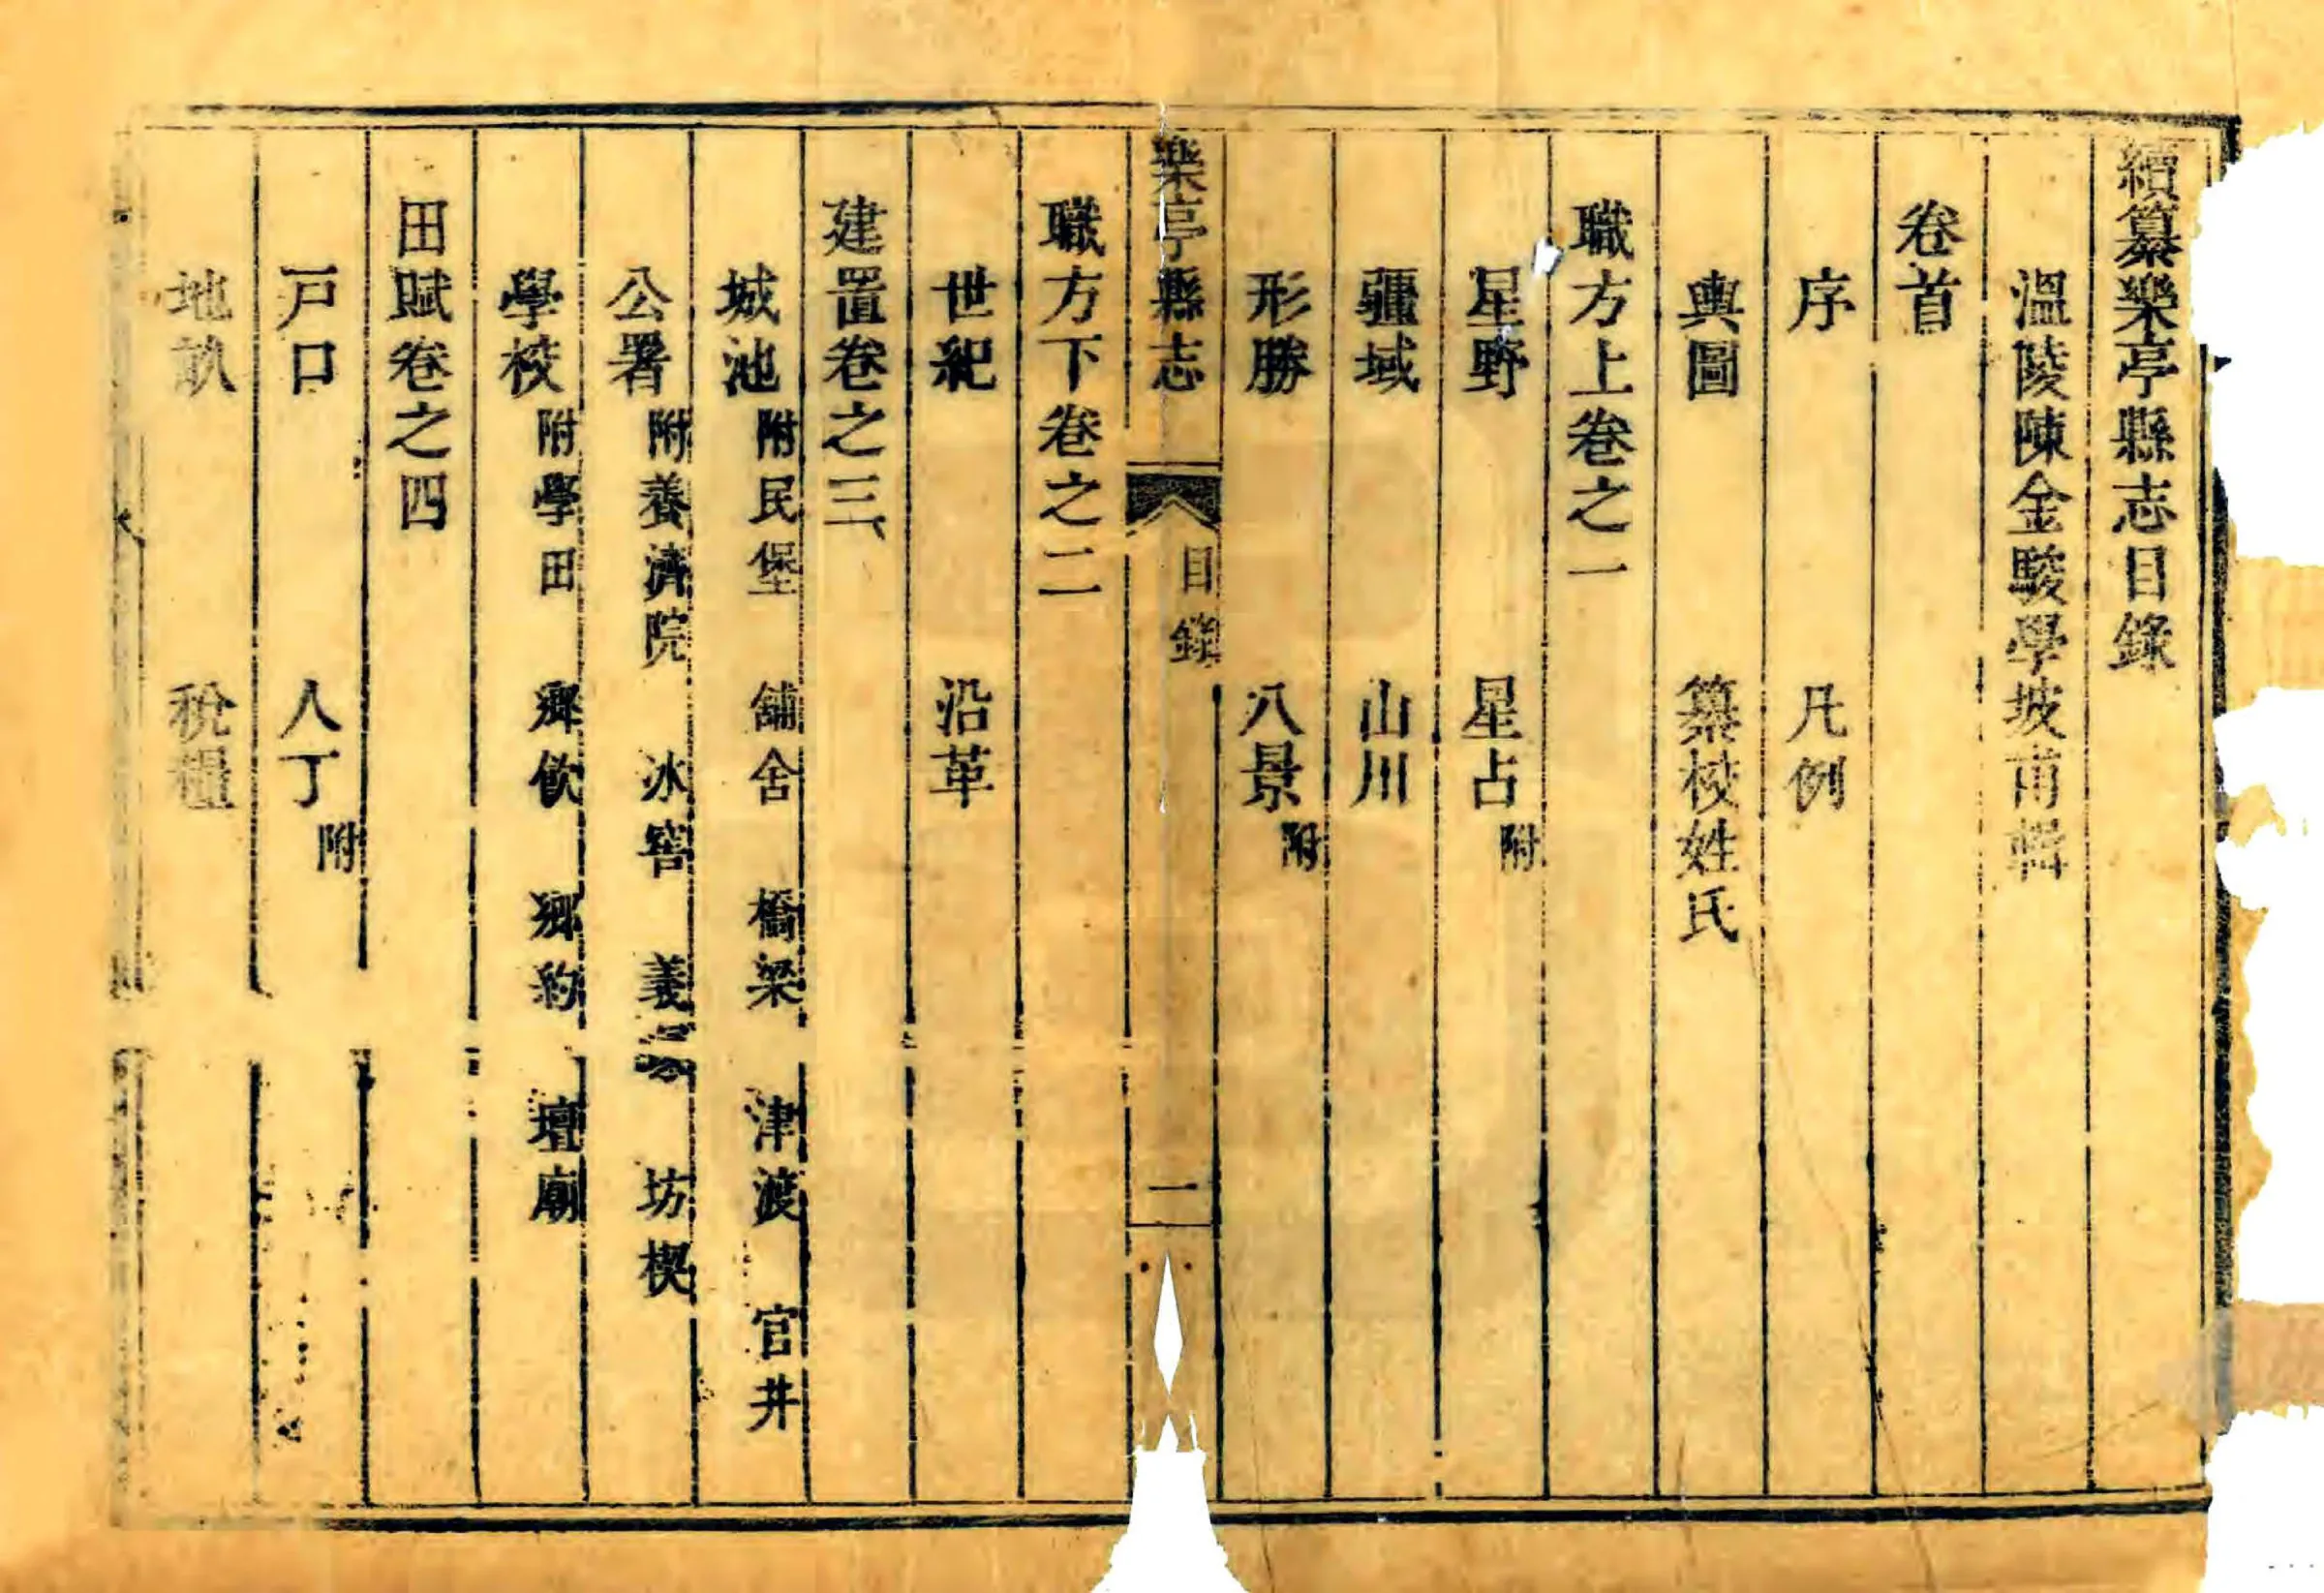 續纂樂亭縣志目錄
溫陵陳金駿學坡甫輯
卷首
序 凡例
輿圖 纂校姓氏
職方上卷之一
星野 星占附
疆域 山川
形勝 八景附
樂亭縣志 目錄 一
職方下卷之二
世紀 沿革
建置卷之三
城池附民堡 舖舍 橋梁 津渡 官井
公署附養濟院 冰窖 義 坊楔
學校附學田 鄉飲 鄉約 壇廟
田賦卷之四
戸口 人丁附
地畝 稅糧